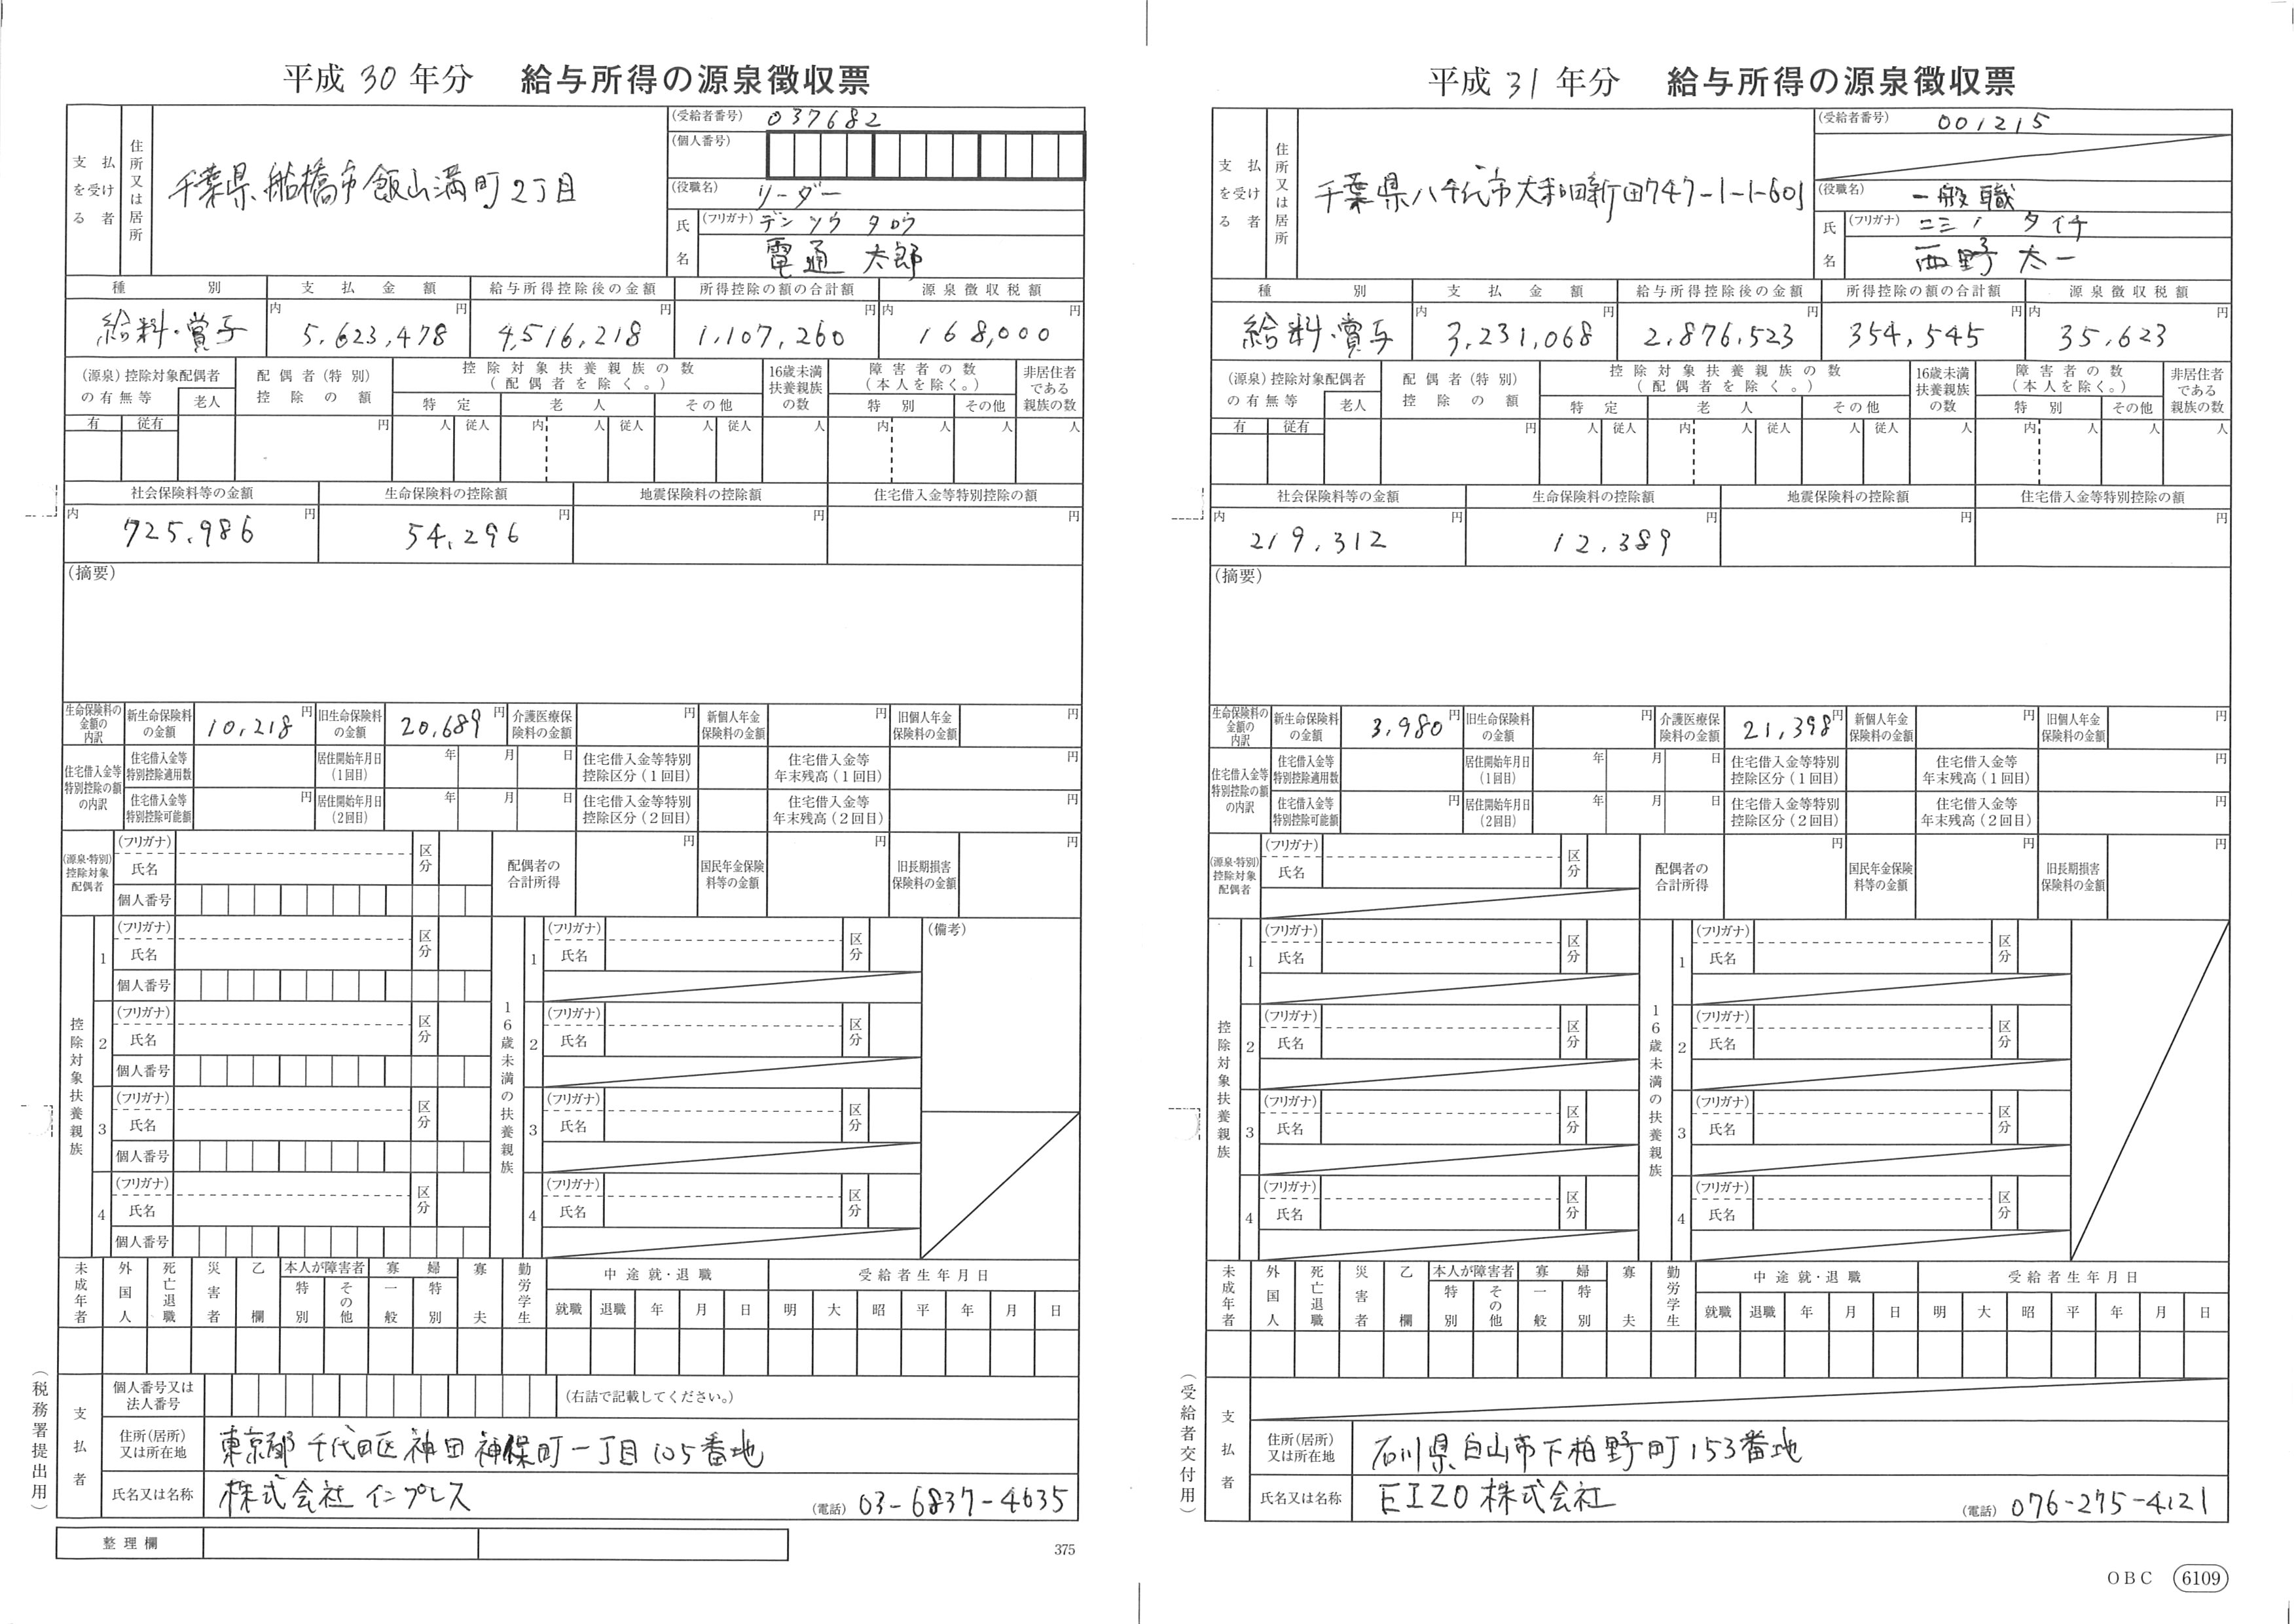 平成 30 年分 給与所得の源泉徴収票
支払を受ける者
住所又は居所
千葉県船橋市飯山満町2丁目
(受給者番号) 037682
(個人番号)
(役職名) リーダー
氏名
(フリガナ) デンツウ タロウ
電通 太郎
種別 支払金額 給与所得控除後の金額 所得控除の額の合計額 源泉徴収税額
給料・賞与 内 5,623,478 円 4,516,218 円 1,107,260 円 内 168,000 円
(源泉)控除対象配偶者の有無等 老人 配偶者(特別)控除の額 控除対象扶養親族の数(配偶者を除く。) 16歳未満扶養親族の数 障害者の数(本人を除く。) 非居住者である親族の数
特定 老人 その他 特別 その他
有 従有 円 人 従人 内 人 従人 人 従人 人 内 人 人 人
社会保険料等の金額 生命保険料の控除額 地震保険料の控除額 住宅借入金等特別控除の額
内 725,986 円 54,296 円 円 円
(摘要)
生命保険料の金額の内訳 新生命保険料の金額 10,218 円 旧生命保険料の金額 20,689 円 介護医療保険料の金額 円 新個人年金保険料の金額 円 旧個人年金保険料の金額 円
住宅借入金等特別控除の額の内訳 住宅借入金等特別控除適用数 居住開始年月日(1回目) 年 月 日 住宅借入金等特別控除区分(1回目) 住宅借入金等年末残高(1回目) 円
住宅借入金等特別控除可能額 円 居住開始年月日(2回目) 年 月 日 住宅借入金等特別控除区分(2回目) 住宅借入金等年末残高(2回目) 円
(源泉・特別)控除対象配偶者 (フリガナ) 氏名 区分 個人番号 配偶者の合計所得 円 国民年金保険料等の金額 円 旧長期損害保険料の金額 円
控除対象扶養親族 16歳未満の扶養親族 (備考)
1 (フリガナ) 氏名 区分 個人番号 1 (フリガナ) 氏名 区分
2 (フリガナ) 氏名 区分 個人番号 2 (フリガナ) 氏名 区分
3 (フリガナ) 氏名 区分 個人番号 3 (フリガナ) 氏名 区分
4 (フリガナ) 氏名 区分 個人番号 4 (フリガナ) 氏名 区分
未成年者 外国人 死亡退職 災害者 乙欄 本人が障害者 特別 その他 寡婦 一般 特別 寡夫 勤労学生 中途就・退職 受給者生年月日
就職 退職 年 月 日 明 大 昭 平 年 月 日
(税務署提出用)
支払者
個人番号又は法人番号 (右詰で記載してください。)
住所(居所)又は所在地 東京都千代田区神田神保町一丁目105番地
氏名又は名称 株式会社インプレス (電話) 03-6837-4635
整理欄
375
平成 31 年分 給与所得の源泉徴収票
支払を受ける者
住所又は居所
千葉県八千代市大和田新田747-1-1-601
(受給者番号) 001215
(役職名) 一般職
氏名
(フリガナ) ニシノ タイチ
西野 太一
種別 支払金額 給与所得控除後の金額 所得控除の額の合計額 源泉徴収税額
給料・賞与 内 3,231,068 円 2,876,523 円 354,545 円 内 35,623 円
(源泉)控除対象配偶者の有無等 老人 配偶者(特別)控除の額 控除対象扶養親族の数(配偶者を除く。) 16歳未満扶養親族の数 障害者の数(本人を除く。) 非居住者である親族の数
特定 老人 その他 特別 その他
有 従有 円 人 従人 内 人 従人 人 従人 人 内 人 人 人
社会保険料等の金額 生命保険料の控除額 地震保険料の控除額 住宅借入金等特別控除の額
内 219,312 円 12,389 円 円 円
(摘要)
生命保険料の金額の内訳 新生命保険料の金額 3,980 円 旧生命保険料の金額 円 介護医療保険料の金額 21,398 円 新個人年金保険料の金額 円 旧個人年金保険料の金額 円
住宅借入金等特別控除の額の内訳 住宅借入金等特別控除適用数 居住開始年月日(1回目) 年 月 日 住宅借入金等特別控除区分(1回目) 住宅借入金等年末残高(1回目) 円
住宅借入金等特別控除可能額 円 居住開始年月日(2回目) 年 月 日 住宅借入金等特別控除区分(2回目) 住宅借入金等年末残高(2回目) 円
(源泉・特別)控除対象配偶者 (フリガナ) 氏名 区分 配偶者の合計所得 円 国民年金保険料等の金額 円 旧長期損害保険料の金額 円
控除対象扶養親族 16歳未満の扶養親族
1 (フリガナ) 氏名 区分 1 (フリガナ) 氏名 区分
2 (フリガナ) 氏名 区分 2 (フリガナ) 氏名 区分
3 (フリガナ) 氏名 区分 3 (フリガナ) 氏名 区分
4 (フリガナ) 氏名 区分 4 (フリガナ) 氏名 区分
未成年者 外国人 死亡退職 災害者 乙欄 本人が障害者 特別 その他 寡婦 一般 特別 寡夫 勤労学生 中途就・退職 受給者生年月日
就職 退職 年 月 日 明 大 昭 平 年 月 日
(受給者交付用)
支払者
住所(居所)又は所在地 石川県白山市下柏野町153番地
氏名又は名称 EIZO株式会社 (電話) 076-275-4121
OBC 6109